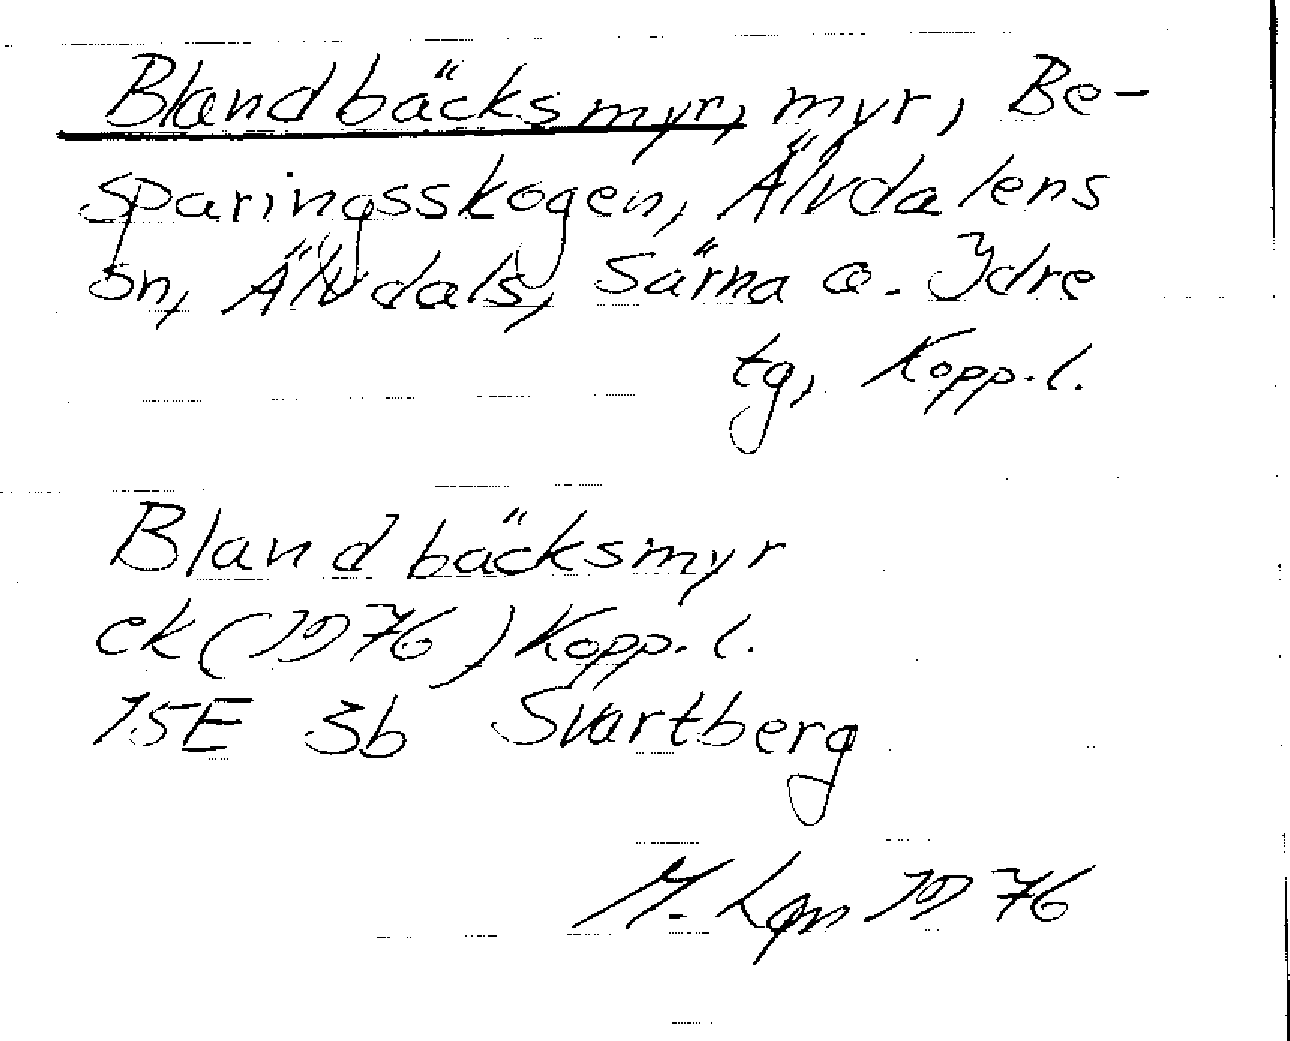 Blandbäcksmyr, myr, Be-
sparingsskogen, Älvdalens
sn, Älvdals, Särna o. Idre
tg, Kopp.l.
Blandbäcksmyr
ek (1976) Kopp. l.
15E 3b Svartberg
M. Lgn 1976